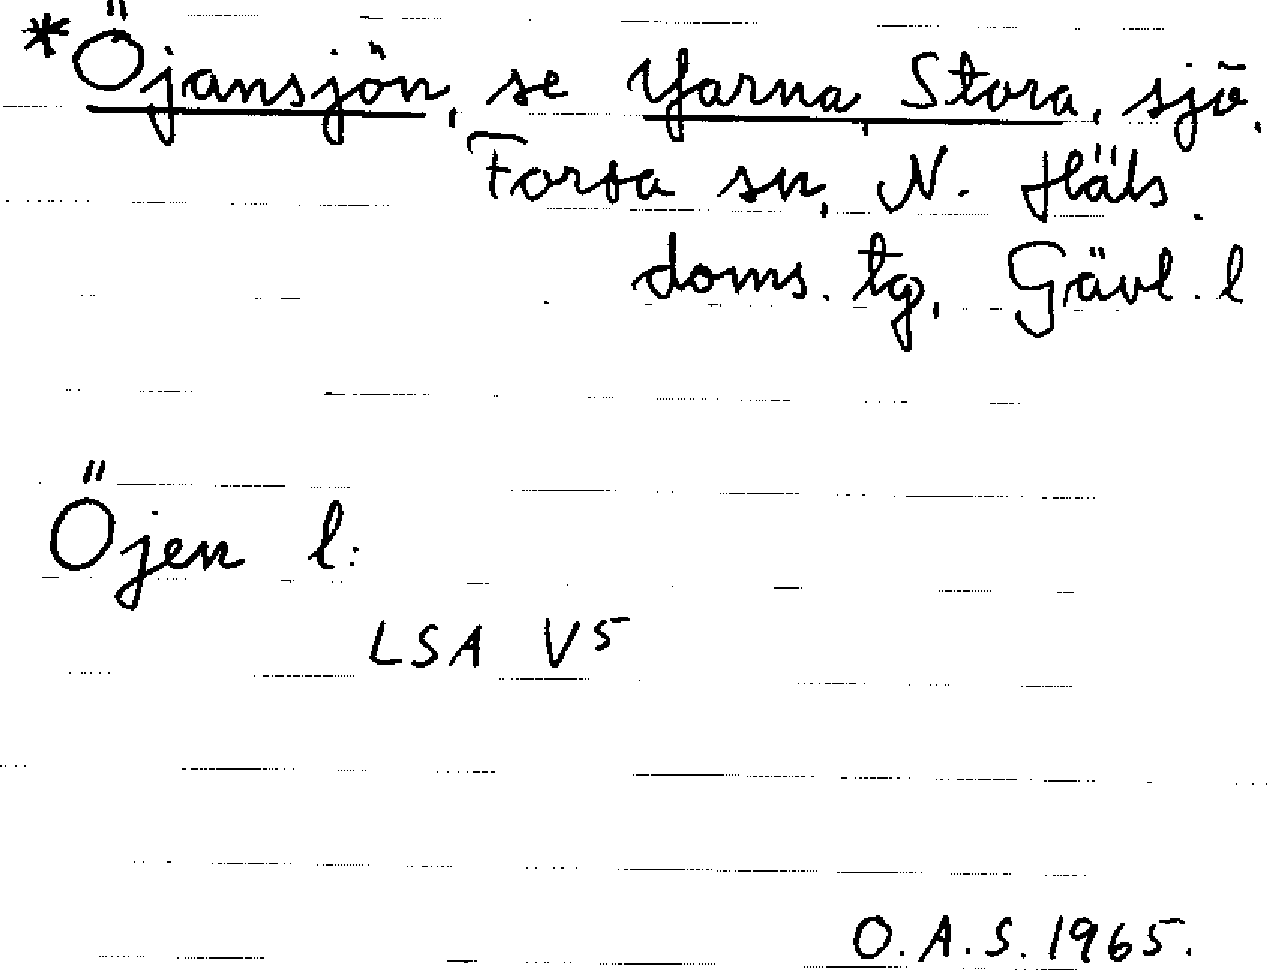 *Öjansjön, se Yarna, Stora, sjö,
Forsa sn, N. Häls.
doms. tg, Gävl. l
Öjen l:
LSA V5
O.A.S. 1965.